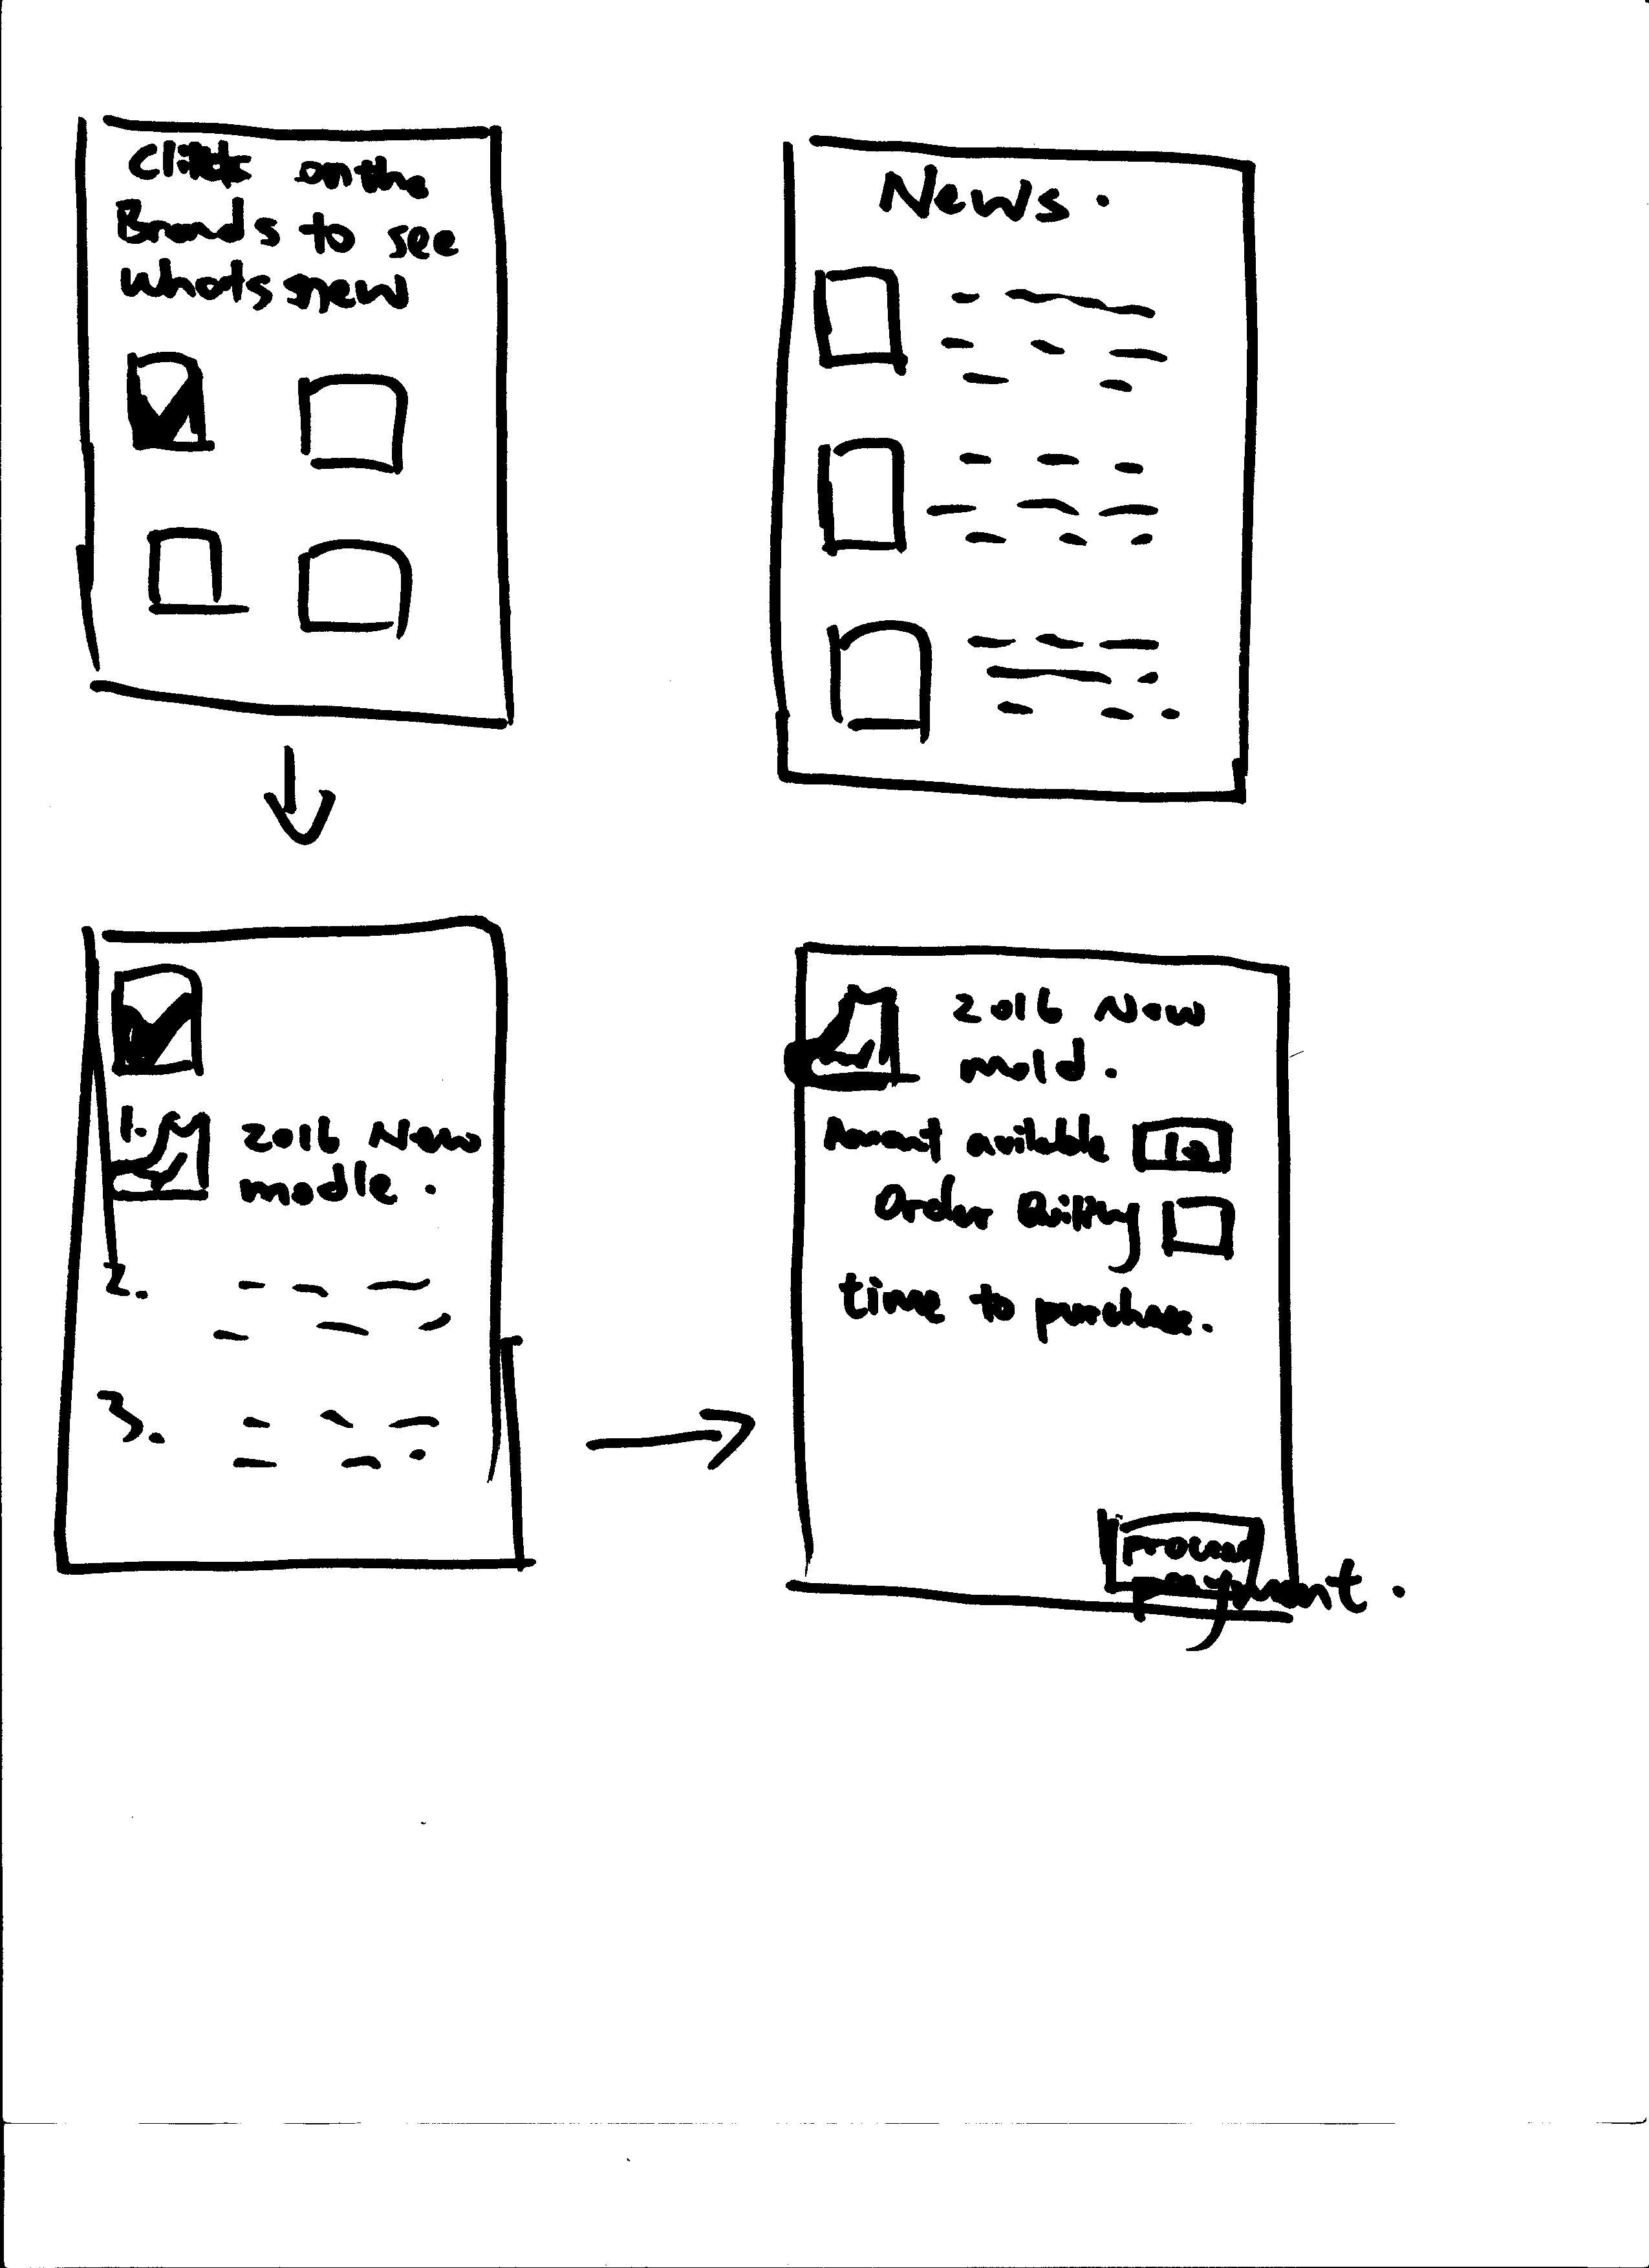 Click on the
Brands to see
whats new
News.
1.
2016 New
modle.
2.
3.
2016 New
mold.
Amount avilable 10
Order
time to purchase.
Proceed
payment.